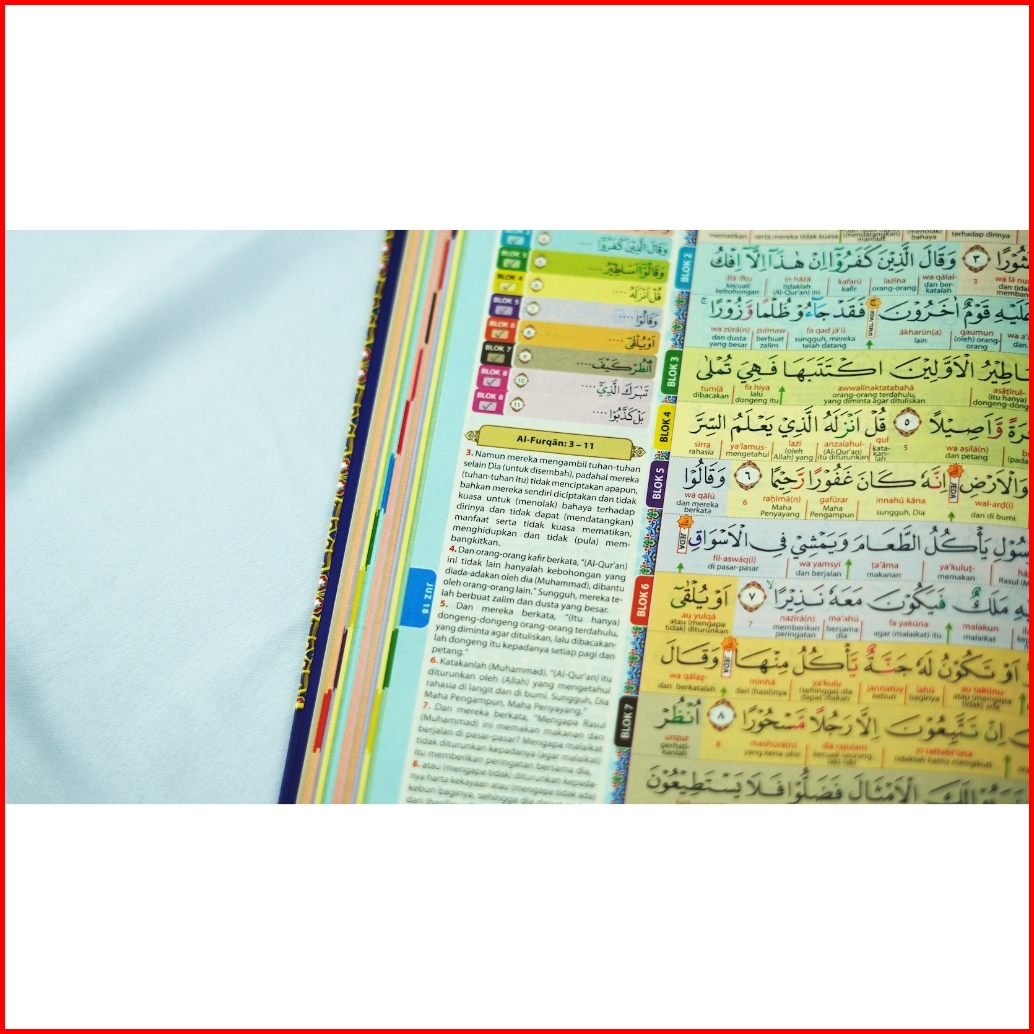 وَقَالَ الَّذِيْنَ كَفَرُوْٓا ....
BLOK 3
وَقَالُوْٓا اَسَاطِيْرُ ....
BLOK 4
قُلْ اَنْزَلَهُ ....
BLOK 5
وَقَالُوْا ....
BLOK 6
اَوْ يُلْقٰٓى ....
BLOK 7
اُنْظُرْ كَيْفَ ....
BLOK 8
تَبٰرَكَ الَّذِيْٓ ....
BLOK 8
بَلْ كَذَّبُوْا ....
Al-Furqān: 3 – 11
3. Namun mereka mengambil tuhan-tuhan
selain Dia (untuk disembah), padahal mereka
(tuhan-tuhan itu) tidak menciptakan apapun,
bahkan mereka sendiri diciptakan dan tidak
kuasa untuk (menolak) bahaya terhadap
dirinya dan tidak dapat (mendatangkan)
manfaat serta tidak kuasa mematikan,
menghidupkan dan tidak (pula) mem-
bangkitkan.
4. Dan orang-orang kafir berkata, "(Al-Qur'an)
ini tidak lain hanyalah kebohongan yang
diada-adakan oleh dia (Muhammad), dibantu
oleh orang-orang lain," Sungguh, mereka te-
lah berbuat zalim dan dusta yang besar.
5. Dan mereka berkata, "(Itu hanya)
dongeng-dongeng orang-orang terdahulu,
yang diminta agar dituliskan, lalu dibacakan-
lah dongeng itu kepadanya setiap pagi dan
petang."
6. Katakanlah (Muhammad), "(Al-Qur'an) itu
diturunkan oleh (Allah) yang mengetahui
rahasia di langit dan di bumi. Sungguh, Dia
Maha Pengampun, Maha Penyayang."
7. Dan mereka berkata, "Mengapa Rasul
(Muhammad) ini memakan makanan dan
berjalan di pasar-pasar? Mengapa malaikat
tidak diturunkan kepadanya (agar malaikat)
itu memberikan peringatan bersama dia,
8. atau (mengapa tidak) diturunkan kepada-
nya harta kekayaan atau (mengapa tidak ada)
kebun baginya, sehingga dia
JUZ 18
mematikan serta mereka tidak kuasa (mendatangkan) manfaat (menolak) bahaya terhadap dirinya
BLOK 2
٣ وَقَالَ الَّذِيْنَ كَفَرُوْٓا اِنْ هٰذَآ اِلَّآ اِفْكُ
illā ifku in hāżā kafarū lażīna wa qālal- 3
kecuali kebohongan tidaklah (Al-Qur'an) ini kafir orang-orang dan ber-katalah
عَلَيْهِ قَوْمٌ اٰخَرُوْنَ فَقَدْ جَاۤءُوْ ظُلْمًا وَّزُوْرًا
wa zūrā(n) zulmaw fa qad jā'ū ākharūn(a) qaumun
dan dusta yang besar berbuat zalim sungguh, mereka telah datang lain (oleh) orang-orang
BLOK 3
اَسَاطِيْرُ الْاَوَّلِيْنَ اكْتَتَبَهَا فَهِيَ تُمْلٰى
tumlā fa hiya awwalīnaktatabahā asāṭīrul-
dibacakan lalu dongeng itu orang-orang terdahulu, yang diminta agar dituliskan (itu hanya) dongeng-dong
BLOK 4
بُكْرَةً وَّاَصِيْلًا ٥ قُلْ اَنْزَلَهُ الَّذِيْ يَعْلَمُ السِّرَّ
sirra ya'lamus- lażī anzalahul- qul 5 wa aṣīlā(n)
rahasia mengetahui (oleh Allah) yang (Al-Qur'an) itu diturunkan kata-kan-lah dan petang
BLOK 5
وَالْاَرْضِ اِنَّهٗ كَانَ غَفُوْرًا رَّحِيْمًا ٦ وَقَالُوْا
wa qālū 6 rahīmā(n) gafūrar innahū kāna wal-arḍ(i)
dan mereka berkata Maha Penyayang Maha Pengampun sungguh, Dia dan di bumi
الرَّسُوْلِ يَأْكُلُ الطَّعَامَ وَيَمْشِيْ فِى الْاَسْوَاقِ
fil-aswāq(i) wa yamsyī ṭa'āma ya'kuluṭ-
di pasar-pasar dan berjalan makanan memakan
BLOK 6
اِلَيْهِ مَلَكٌ فَيَكُوْنَ مَعَهٗ نَذِيْرًا ٧ اَوْ يُلْقٰٓى
au yulqā 7 nażīrā(n) ma'ahū fa yakūna malakun
atau (mengapa tidak) diturunkan memberikan peringatan bersama dia agar (malaikat) itu malaikat
اَوْ تَكُوْنُ لَهٗ جَنَّةٌ يَّأْكُلُ مِنْهَا وَقَالَ
wa qālaẓ- minhā ya'kulu jannatuy lahū au takūnu
dan berkatalah dari (hasil)nya (sehingga) dia dapat makan kebun baginya atau (mengapa tidak) ada
BLOK 7
اِنْ تَتَّبِعُوْنَ اِلَّا رَجُلًا مَّسْحُوْرًا ٨ اُنْظُرْ
unẓur 8 masḥūrā(n) illā rajulam in tattabi'ūna
perhati-kanlah yang kena sihir kecuali seorang laki-laki tidaklah kamu mengikuti
لَكَ الْاَمْثَالَ فَضَلُّوْا فَلَا يَسْتَطِيْعُوْنَ